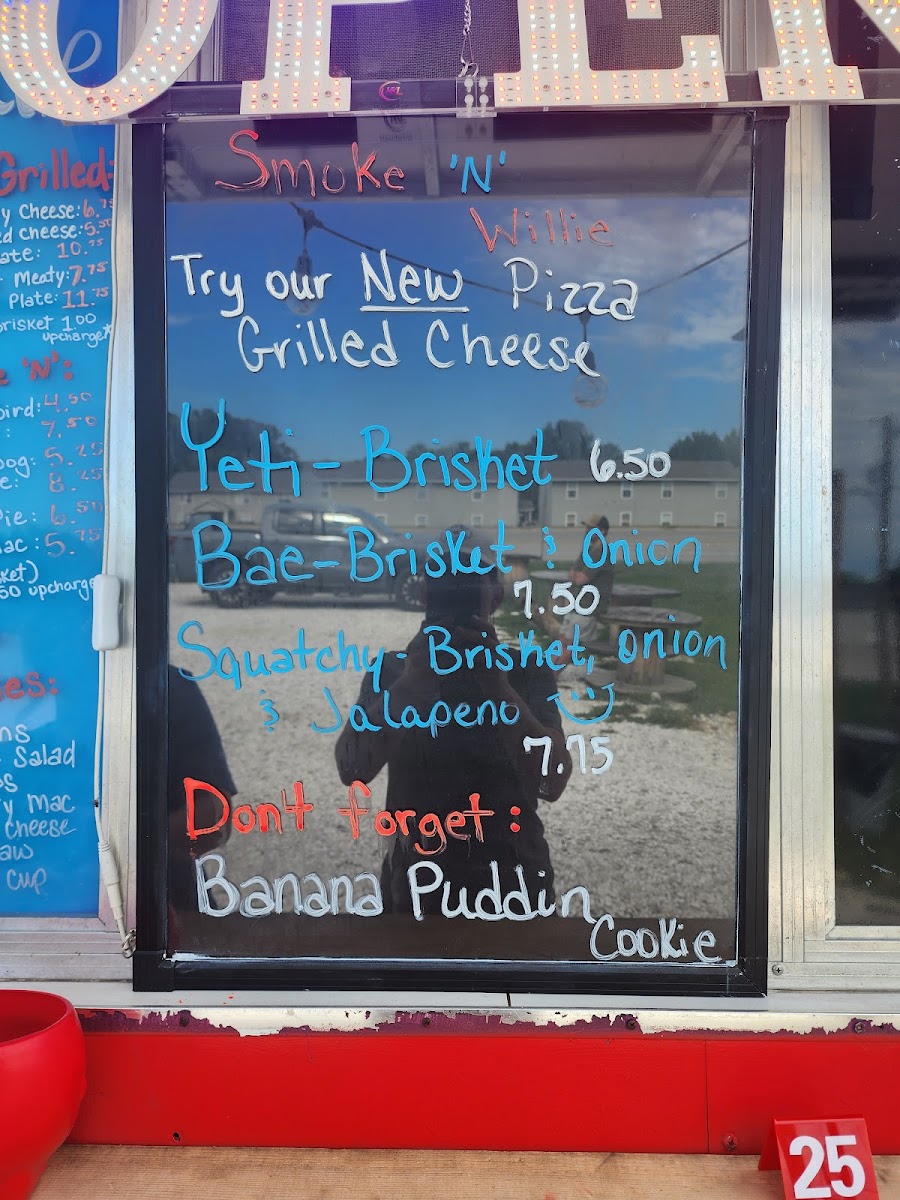 OPEN
Smoke 'N'
Willie
Try our New Pizza
Grilled Cheese
Yeti - Brisket 6.50
Bae - Brisket & Onion
7.50
Squatchy - Brisket, onion
& Jalapeno
7.75
Don't forget:
Banana Puddin
Cookie
Grilled:
y Cheese: 6.75
ed cheese: 5.50
ate: 10.75
Meaty: 7.75
Plate: 11.75
brisket 1.00
upcharge*
'N':
bird: 4.50
: 7.50
Dog: 5.25
e: 8.25
Pie: 6.50
mac: 5.75
ket)
50 upcharge
es:
ns
Salad
s
y Mac
cheese
aw
cup
25